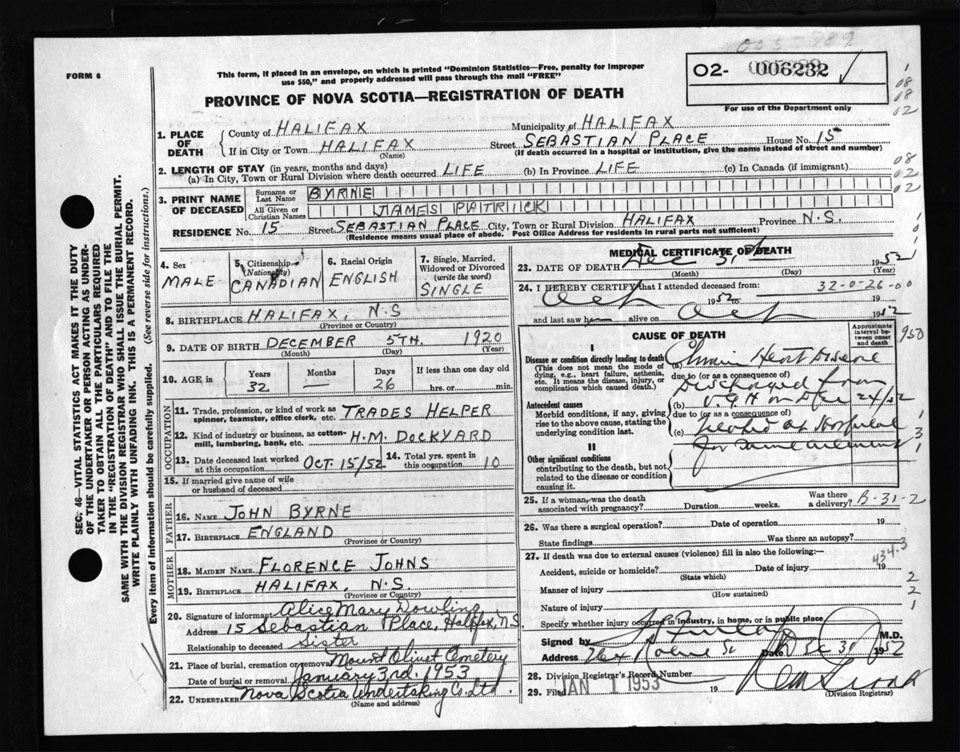 005 889
FORM 6
This form, if placed in an envelope, on which is printed "Dominion Statistics—Free, penalty for improper
use $50," and properly addressed will pass through the mail "FREE"
02- 006232 ✓
PROVINCE OF NOVA SCOTIA—REGISTRATION OF DEATH
For use of the Department only
1. PLACE OF DEATH County of HALIFAX Municipality of HALIFAX
If in City or Town HALIFAX (Name) Street SEBASTIAN PLACE House No. 15
(If death occurred in a hospital or institution, give the name instead of street and number)
2. LENGTH OF STAY (in years, months and days)
(a) In City, Town or Rural Division where death occurred LIFE (b) In Province LIFE (c) In Canada (if immigrant)
3. PRINT NAME OF DECEASED Surname or Last Name BYRNE
All Given or Christian Names JAMES PATRICK
RESIDENCE No. 15 Street SEBASTIAN PLACE City, Town or Rural Division HALIFAX Province N.S.
(Residence means usual place of abode. Post Office Address for residents in rural parts not sufficient)
4. Sex MALE
5. Citizenship (Nationality) CANADIAN
6. Racial Origin ENGLISH
7. Single, Married, Widowed or Divorced (write the word) SINGLE
8. BIRTHPLACE HALIFAX, N.S
(Province or Country)
9. DATE OF BIRTH DECEMBER 5TH. 1920
(Month) (Day) (Year)
10. AGE in Years 32 Months — Days 26 If less than one day hrs. or min.
OCCUPATION
11. Trade, profession, or kind of work as spinner, teamster, office clerk, etc. TRADES HELPER
12. Kind of industry or business, as cotton-mill, lumbering, bank, etc. H.M. DOCKYARD
13. Date deceased last worked at this occupation OCT. 15/52 14. Total yrs. spent in this occupation 10
15. If married give name of wife or husband of deceased
FATHER
16. NAME JOHN BYRNE
17. BIRTHPLACE ENGLAND
(Province or Country)
MOTHER
18. MAIDEN NAME FLORENCE JOHNS
19. BIRTHPLACE HALIFAX, N.S.
(Province or Country)
20. Signature of informant Alice Mary Dowling
Address 15 Sebastian Place, Halifax, N.S
Relationship to deceased Sister
21. Place of burial, cremation or removal Mount Olivet Cemetery
Date of burial or removal January 3rd. 1953
22. UNDERTAKER Nova Scotia Undertaking Co. Ltd.
(Name and address)
MEDICAL CERTIFICATE OF DEATH
23. DATE OF DEATH Dec 31 1952
(Month) (Day) (Year)
24. I HEREBY CERTIFY that I attended deceased from: 32-0-26-00
Oct 1952 to 19
and last saw h alive on Oct 1952
CAUSE OF DEATH
Approximate interval between onset and death
I
Disease or condition directly leading to death
(This does not mean the mode of dying, e.g., heart failure, asthenia, etc. It means the disease, injury, or complication which caused death.)
(a) Heart Disease
due to (or as a consequence of)
Discharged from
(b) V.G.H on Dec 24/52
Antecedent causes
Morbid conditions, if any, giving rise to the above cause, stating the underlying condition last.
due to (or as a consequence of)
(c) Treated at Hospital
for same ailment
II
Other significant conditions
contributing to the death, but not related to the disease or condition causing it.
25. If a woman, was the death associated with pregnancy? Duration weeks. Was there a delivery? B-31-2
26. Was there a surgical operation? Date of operation 19
State findings Was there an autopsy?
434.3
27. If death was due to external causes (violence) fill in also the following:—
Accident, suicide or homicide? Date of injury 19
(State which)
Manner of injury
(How sustained)
Nature of injury
Specify whether injury occurred in industry, in home, or in public place
Signed by M.D.
Address Date Dec 30 1952
28. Division Registrar's Record Number
29. Filed JAN 1 1953 19
(Division Registrar)
SEC. 46—VITAL STATISTICS ACT MAKES IT THE DUTY
OF THE UNDERTAKER OR PERSON ACTING AS UNDER-
TAKER TO OBTAIN ALL THE PARTICULARS REQUIRED
IN THE "REGISTRATION OF DEATH" AND TO FILE THE
SAME WITH THE DIVISION REGISTRAR WHO SHALL ISSUE THE BURIAL PERMIT.
WRITE PLAINLY WITH UNFADING INK. THIS IS A PERMANENT RECORD.
Every item of information should be carefully supplied. (See reverse side for instructions.)